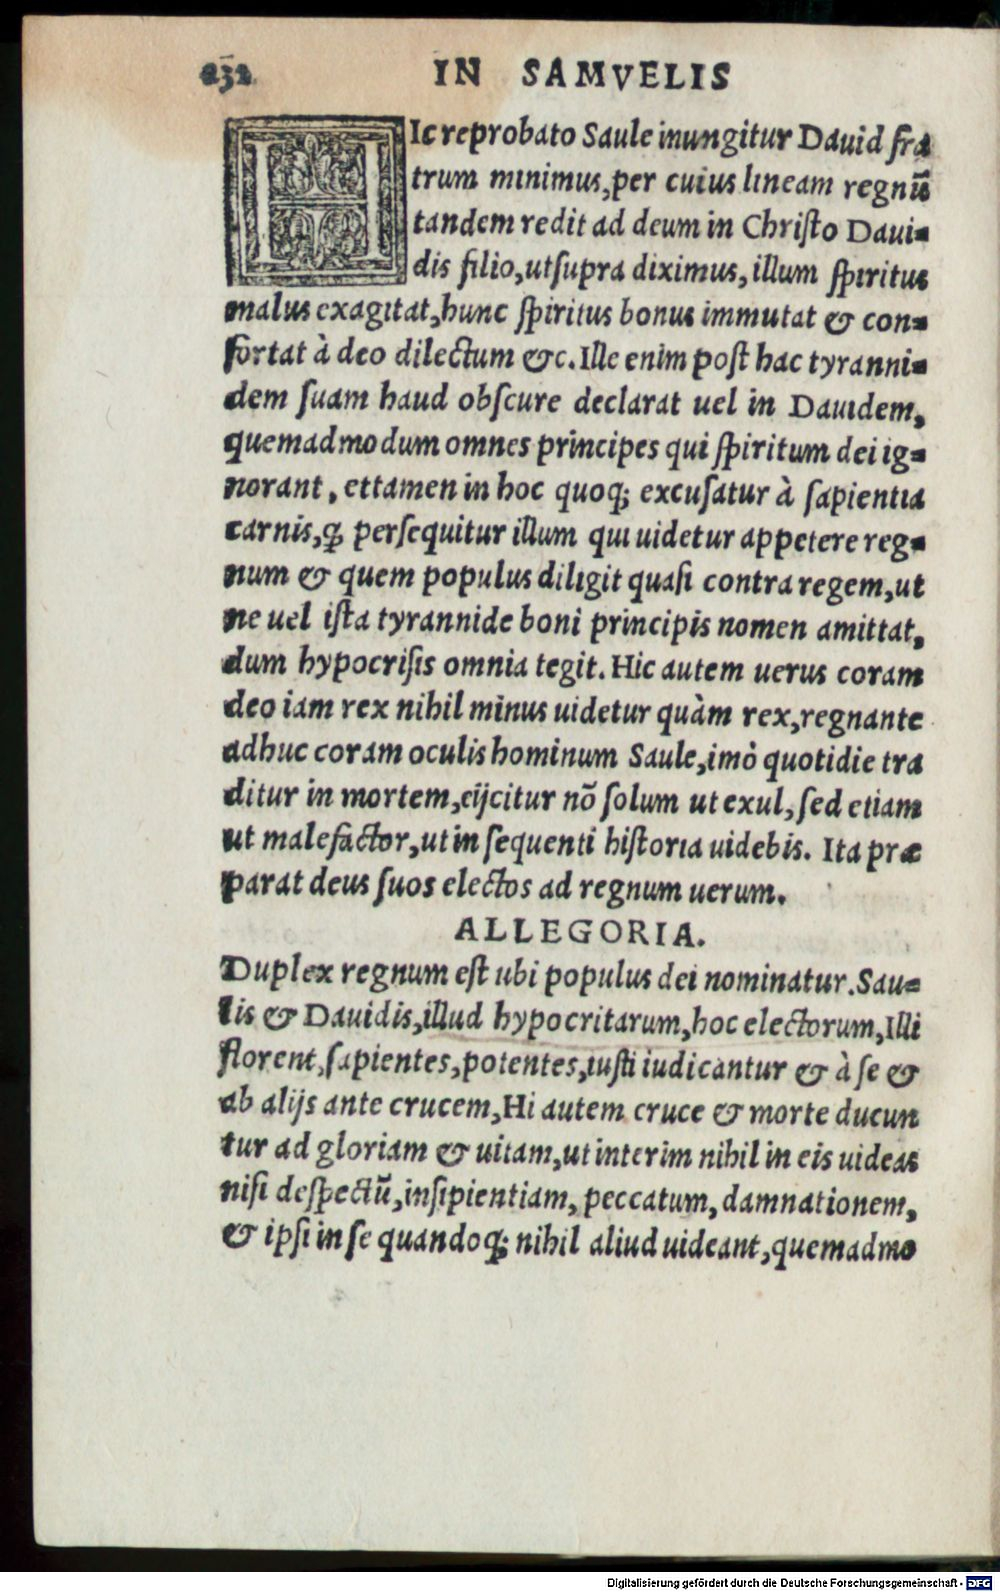 232 IN SAMVELIS
HIc reprobato Saule inungitur Dauid fra
trum minimus, per cuius lineam regnũ
tandem redit ad deum in Christo Daui=
dis filio, ut supra diximus, illum spiritus
malus exagitat, hunc spiritus bonus immutat & con=
fortat à deo dilectum &c. Ille enim post hac tyranni=
dem suam haud obscure declarat uel in Dauidem,
quemadmodum omnes principes qui spiritum dei ig=
norant, et tamen in hoc quoq; excusatur à sapientia
carnis, ꝙ persequitur illum qui uidetur appetere reg=
num & quem populus diligit quasi contra regem, ut
ne uel ista tyrannide boni principis nomen amittat,
dum hypocrisis omnia tegit. Hic autem uerus coram
deo iam rex nihil minus uidetur quàm rex, regnante
adhuc coram oculis hominum Saule, imò quotidie tra
ditur in mortem, eijcitur nõ solum ut exul, sed etiam
ut malefactor, ut in sequenti historia uidebis. Ita præ
parat deus suos electos ad regnum uerum.
ALLEGORIA.
Duplex regnum est ubi populus dei nominatur. Sau=
lis & Dauidis, illud hypocritarum, hoc electorum, Illi
florent, sapientes, potentes, iusti iudicantur & à se &
ab alijs ante crucem, Hi autem cruce & morte ducun
tur ad gloriam & uitam, ut interim nihil in eis uideas
nisi despectũ, insipientiam, peccatum, damnationem,
& ipsi in se quandoq; nihil aliud uideant, quemadmo
Digitalisierung gefördert durch die Deutsche Forschungsgemeinschaft - DFG